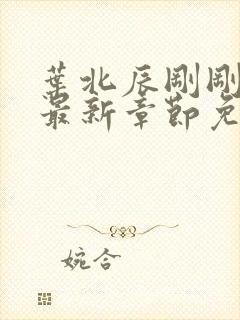 葉北辰剛剛
最新章節免
婉合